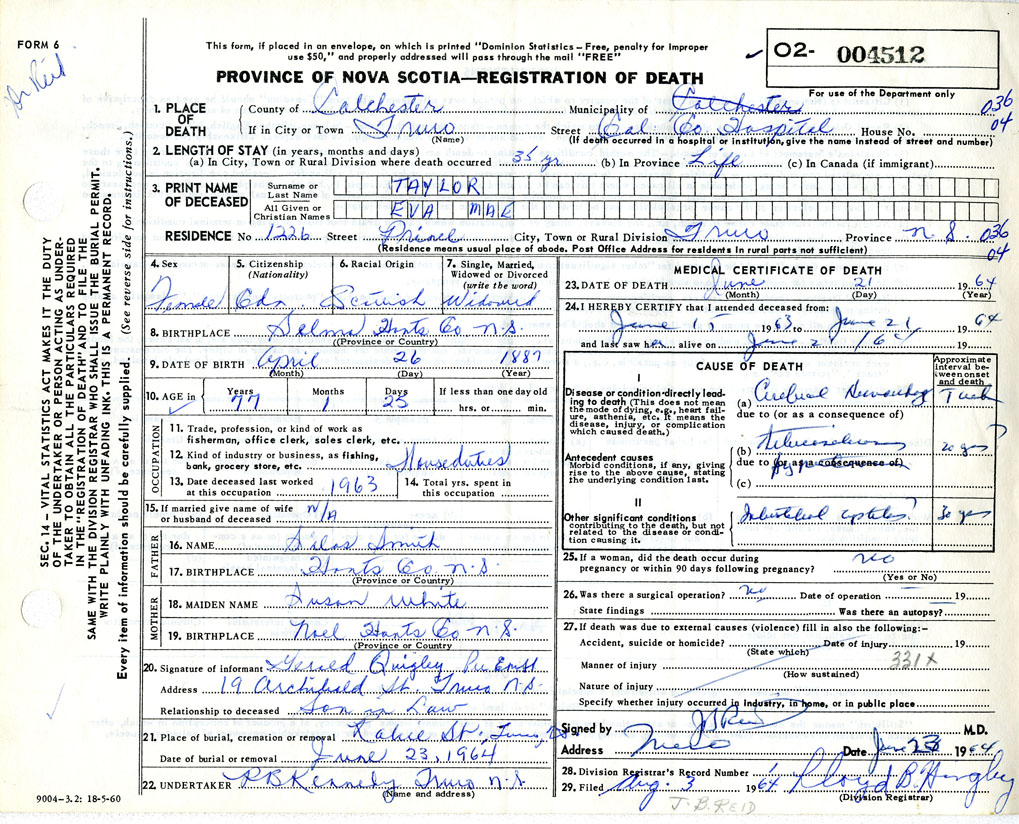 FORM 6
Dr Reid
This form, if placed in an envelope, on which is printed "Dominion Statistics – Free, penalty for improper
use $50," and properly addressed will pass through the mail "FREE"
02- 004512
For use of the Department only
PROVINCE OF NOVA SCOTIA—REGISTRATION OF DEATH
1. PLACE OF DEATH County of Colchester Municipality of Colchester 036
If in City or Town Truro Street Col. Co Hospital House No. 04
(Name) (If death occurred in a hospital or institution, give the name instead of street and number)
2. LENGTH OF STAY (in years, months and days)
(a) In City, Town or Rural Division where death occurred 35 yr (b) In Province Life (c) In Canada (if immigrant)
3. PRINT NAME OF DECEASED Surname or Last Name TAYLOR
All Given or Christian Names EVA MAE
RESIDENCE No 1226 Street Prince City, Town or Rural Division Truro Province N.S. 036
04
(Residence means usual place of abode. Post Office Address for residents in rural parts not sufficient)
4. Sex 5. Citizenship (Nationality) 6. Racial Origin 7. Single, Married, Widowed or Divorced (write the word)
Female Cdn Scottish Widowed
8. BIRTHPLACE Selma Hants Co N.S.
(Province or Country)
9. DATE OF BIRTH April 26 1887
(Month) (Day) (Year)
10. AGE in Years Months Days If less than one day old
77 1 25 hrs. or min.
OCCUPATION
11. Trade, profession, or kind of work as
fisherman, office clerk, sales clerk, etc.
12. Kind of industry or business, as fishing,
bank, grocery store, etc. Houseduties
13. Date deceased last worked at this occupation 1963 14. Total yrs. spent in this occupation
15. If married give name of wife
or husband of deceased N/A
FATHER
16. NAME Silas Smith
17. BIRTHPLACE Hants Co N.S.
(Province or Country)
MOTHER
18. MAIDEN NAME Susan White
19. BIRTHPLACE Noel Hants Co N.S.
(Province or Country)
20. Signature of informant Gerald Quigley
Address 19 Archibald St. Truro N.S.
Relationship to deceased Son in Law
21. Place of burial, cremation or removal St., Truro, N.S.
Date of burial or removal June 23, 1964
22. UNDERTAKER P.B Kennedy Truro N.S.
(Name and address)
9004–3.2: 18-5-60
MEDICAL CERTIFICATE OF DEATH
23. DATE OF DEATH June 21 1964
(Month) (Day) (Year)
24. I HEREBY CERTIFY that I attended deceased from:
June 15 1963 to June 21 1964
and last saw her alive on June 21/64 19
CAUSE OF DEATH
Approximate interval between onset and death
I
Disease or condition directly leading to death (This does not mean the mode of dying, e.g., heart failure, asthenia, etc. It means the disease, injury, or complication which caused death.)
(a) Cerebral
due to (or as a consequence of)
Antecedent causes
Morbid conditions, if any, giving rise to the above cause, stating the underlying condition last.
(b) 20 yrs ?
due to (or as a consequence of)
(c)
II
Other significant conditions contributing to the death, but not related to the disease or condition causing it.
30 yrs
25. If a woman, did the death occur during
pregnancy or within 90 days following pregnancy? no
(Yes or No)
26. Was there a surgical operation? no Date of operation 19
State findings Was there an autopsy?
27. If death was due to external causes (violence) fill in also the following:–
Accident, suicide or homicide? Date of injury 19
(State which)
331X
Manner of injury
(How sustained)
Nature of injury
Specify whether injury occurred in industry, in home, or in public place
Signed by JB Reid M.D.
Address Truro Date June 23 1964
28. Division Registrar's Record Number
29. Filed Aug. 3 1964 Lloyd B.
(Division Registrar)
J. B. REID
SEC. 14 – VITAL STATISTICS ACT MAKES IT THE DUTY
OF THE UNDERTAKER OR PERSON ACTING AS UNDER-
TAKER TO OBTAIN ALL THE PARTICULARS REQUIRED
IN THE "REGISTRATION OF DEATH" AND TO FILE THE
SAME WITH THE DIVISION REGISTRAR WHO SHALL ISSUE THE BURIAL PERMIT.
WRITE PLAINLY WITH UNFADING INK. THIS IS A PERMANENT RECORD.
Every item of information should be carefully supplied. (See reverse side for instructions.)